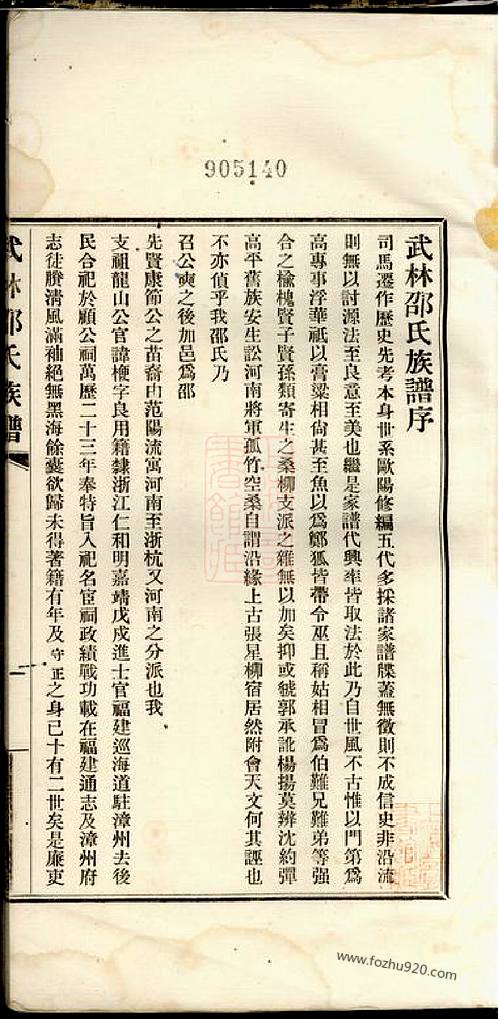 905140
武林邵氏族譜序
司馬遷作歷史先考本身世系歐陽修編五代多採諸家譜牒蓋無徵則不成信史非沿流
則無以討源法至良意至美也繼是家譜代興率皆取法於此乃自世風不古惟以門第爲
高專事浮華祇以膏粱相尙甚至魚以爲鄭狐皆帶令巫且稱姑相冒爲伯難兄難弟等强
合之楡槐賢子賢孫類寄生之桑柳支派之雜無以加矣抑或虢郭承訛楊揚莫辨沈約彈
高平舊族安生訟河南將軍孤竹空桑自謂沿緣上古張星柳宿居然附會天文何其誣也
不亦傎乎我邵氏乃
召公奭之後加邑爲邵
先賢康節公之苗裔由范陽流寓河南至浙杭又河南之分派也我
支祖龍山公官諱楩字良用籍隸浙江仁和明嘉靖戊戌進士官福建巡海道駐漳州去後
民合祀於顧公祠萬歷二十三年奉特旨入祀名宦祠政績戰功載在福建通志及漳州府
志徒賸淸風滿袖絕無黑海餘囊欲歸未得著籍有年及守正之身已十有二世矣是廉吏
武林邵氏族譜
一
www.fozhu920.com